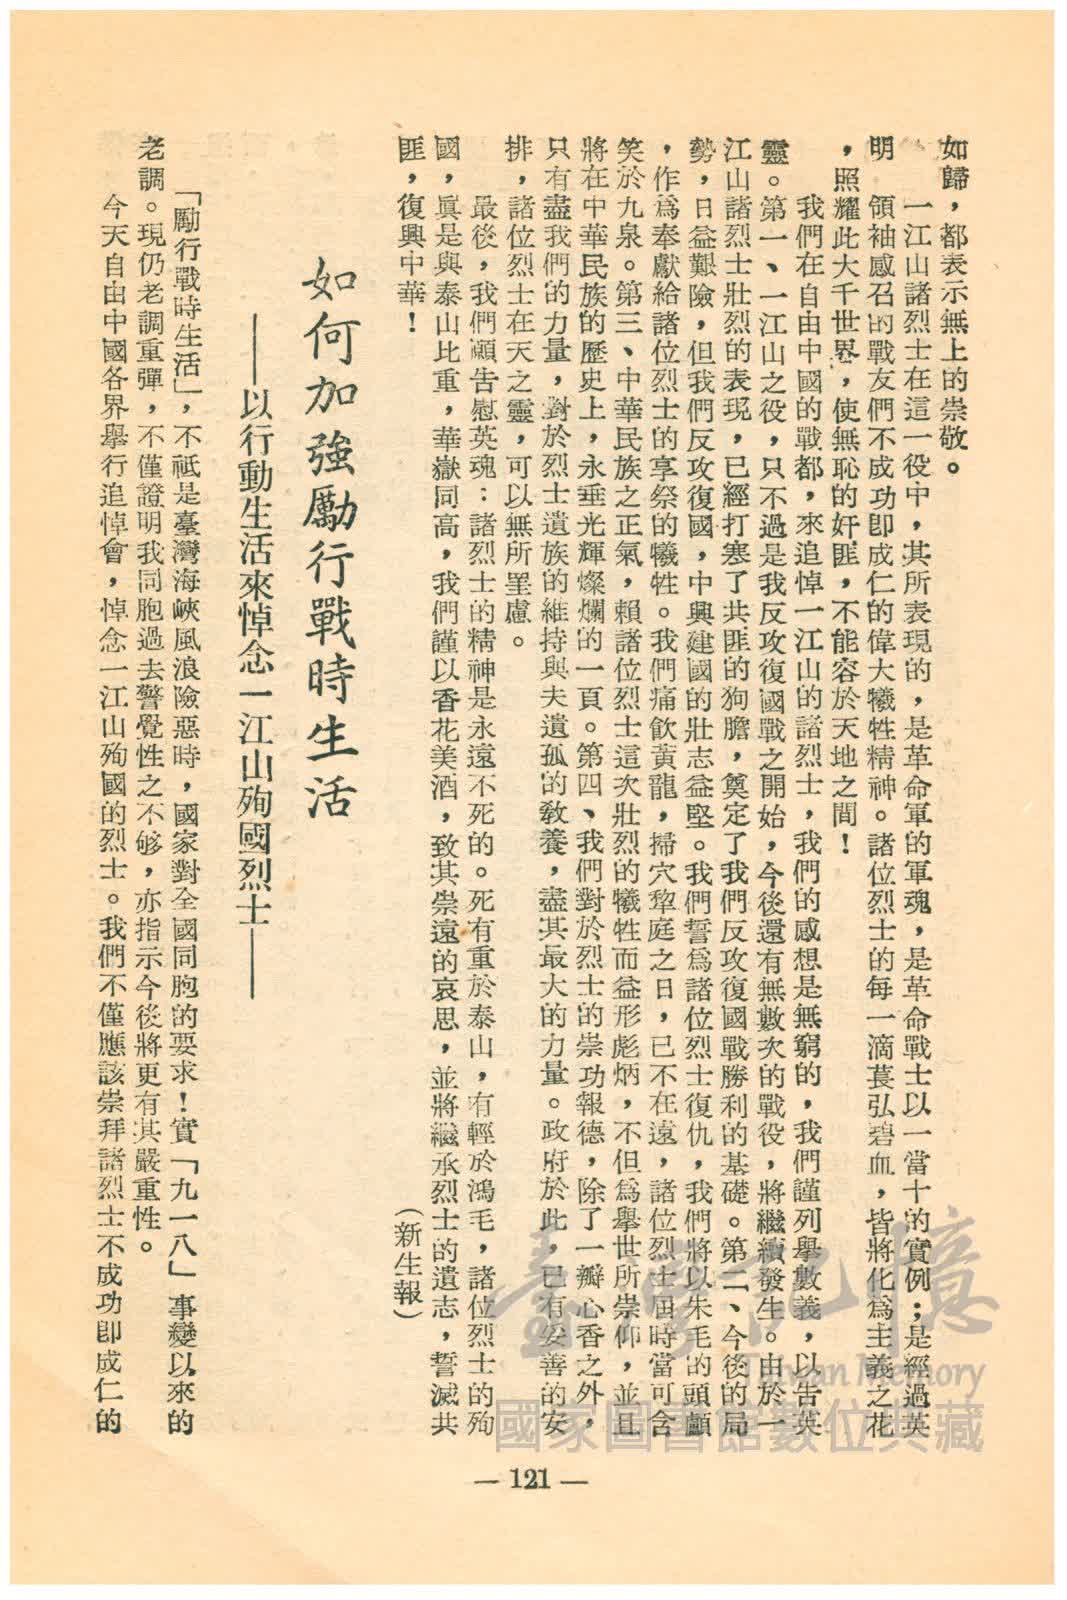 如歸，都表示無上的崇敬。
一江山諸烈士在這一役中，其所表現的，是革命軍的軍魂，是革命戰士以一當十的實例；是經過英
明　領袖感召的戰友們不成功卽成仁的偉大犧牲精神。諸位烈士的每一滴萇弘碧血，皆將化爲主義之花
，照耀此大千世界，使無恥的奸匪，不能容於天地之間！
我們在自由中國的戰都，來追悼一江山的諸烈士，我們的感想是無窮的，我們謹列舉數義，以告英
靈。第一、一江山之役，只不過是我反攻復國戰之開始，今後還有無數次的戰役，將繼續發生。由於一
江山諸烈士壯烈的表現，已經打塞了共匪的狗膽，奠定了我們反攻復國戰勝利的基礎。第二、今後的局
勢，日益艱險，但我們反攻復國，中興建國的壯志益堅。我們誓爲諸位烈士復仇，我們將以朱毛的頭顱
，作爲奉獻給諸位烈士的享祭的犧牲。我們痛飲黃龍，掃穴犂庭之日，已不在遠，諸位烈士屆時當可含
笑於九泉。第三、中華民族之正氣，賴諸位烈士這次壯烈的犧牲而益形彪炳，不但爲舉世所崇仰，並且
將在中華民族的歷史上，永垂光輝燦爛的一頁。第四、我們對於烈士的崇功報德，除了一瓣心香之外，
只有盡我們的力量，對於烈士遺族的維持與夫遺孤的敎養，盡其最大的力量。政府於此，已有妥善的安
排，諸位烈士在天之靈，可以無所罣慮。
最後，我們願告慰英魂：諸烈士的精神是永遠不死的。死有重於泰山，有輕於鴻毛，諸位烈士的殉
國，眞是與泰山比重，華嶽同高，我們謹以香花美酒，致其崇遠的哀思，並將繼承烈士的遺志，誓滅共
匪，復興中華！
（新生報）
如何加強勵行戰時生活
——以行動生活來悼念一江山殉國烈士——
「勵行戰時生活」，不祗是臺灣海峽風浪險惡時，國家對全國同胞的要求！實「九一八」事變以來的
老調。現仍老調重彈，不僅證明我同胞過去警覺性之不够，亦指示今後將更有其嚴重性。
今天自由中國各界舉行追悼會，悼念一江山殉國的烈士。我們不僅應該崇拜諸烈士不成功卽成仁的
— 121 —
臺灣記憶
Taiwan Memory
國家圖書館數位典藏